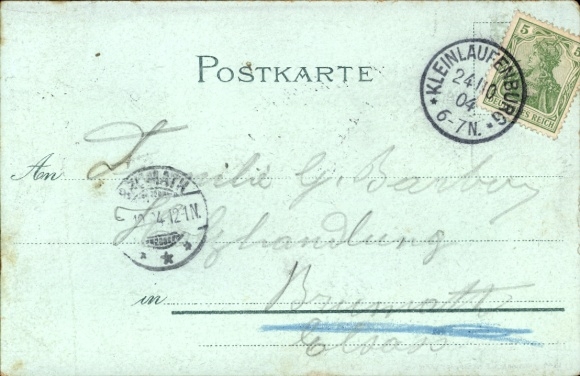 POSTKARTE
KLEINLAUFENBURG
24 10
04
6-7N.
5 5
DEUTSCHES REICH
An Familie G. Barbou
Holzhandlung
12-1N.
in Brumath
Elsass